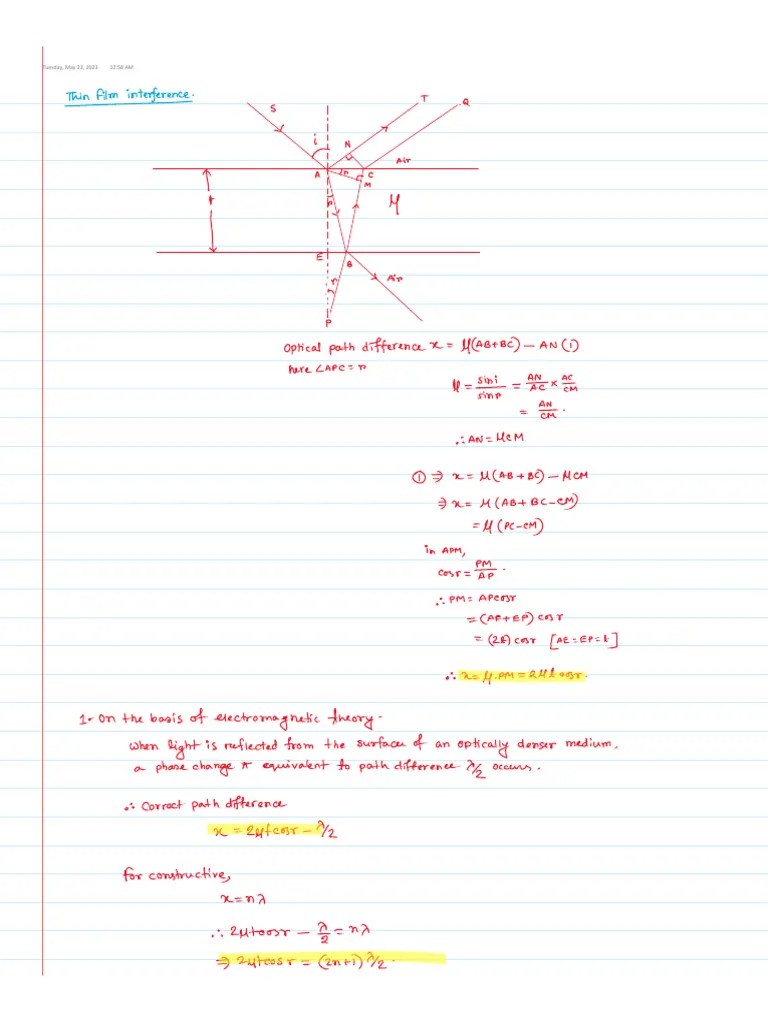 Tuesday, May 23, 2023 12:58 AM
Thin film interference.
S
T
Q
i
N
Air
A
r
C
M
t
r
μ
E
B
r
Air
P
Optical path difference x = μ(AB+BC) — AN (1)
here ∠APC = r
μ = sini/sinr = AN/AC × AC/CM
= AN/CM.
∴ AN = μCM
① ⇒ x = μ(AB+BC) — μCM
⇒ x = μ(AB+BC-CM)
= μ(PC-CM)
in APM,
cosr = PM/AP.
∴ PM = APcosr
= (AE+EP) cosr
= (2t) cosr [AE=EP=t]
∴ x = μ.PM = 2μt cosr.
1. On the basis of electromagnetic theory.
When light is reflected from the surface of an optically denser medium,
a phase change π equivalent to path difference λ/2 occurs.
∴ Correct path difference
x = 2μtcosr — λ/2
for constructive,
x = nλ
∴ 2μtcosr — λ/2 = nλ
⇒ 2μtcosr = (2n+1) λ/2.